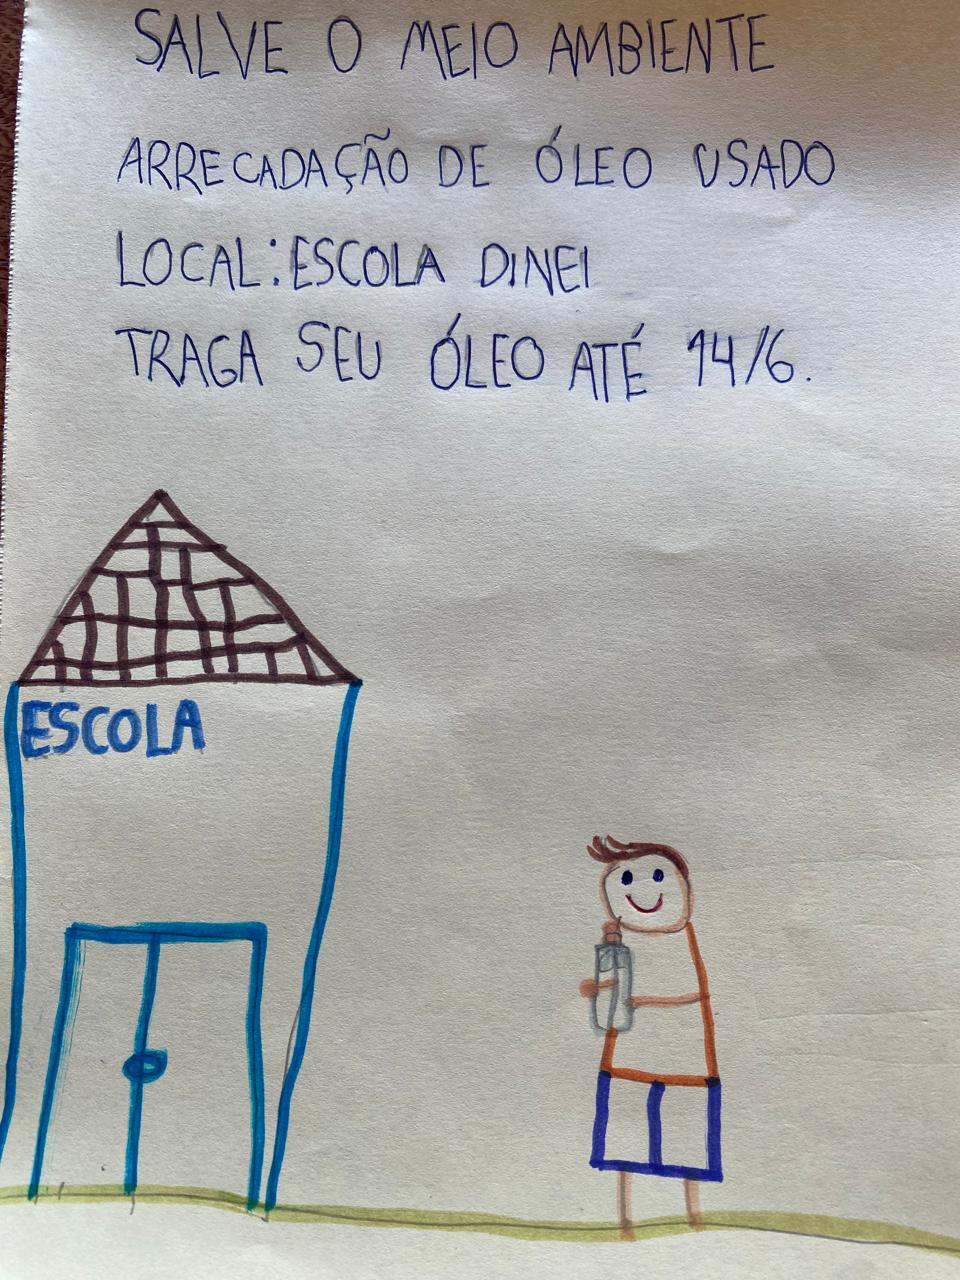 SALVE O MEIO AMBIENTE
ARRECADAÇÃO DE ÓLEO USADO
LOCAL: ESCOLA DINEI
TRAGA SEU ÓLEO ATÉ 14/6.
ESCOLA